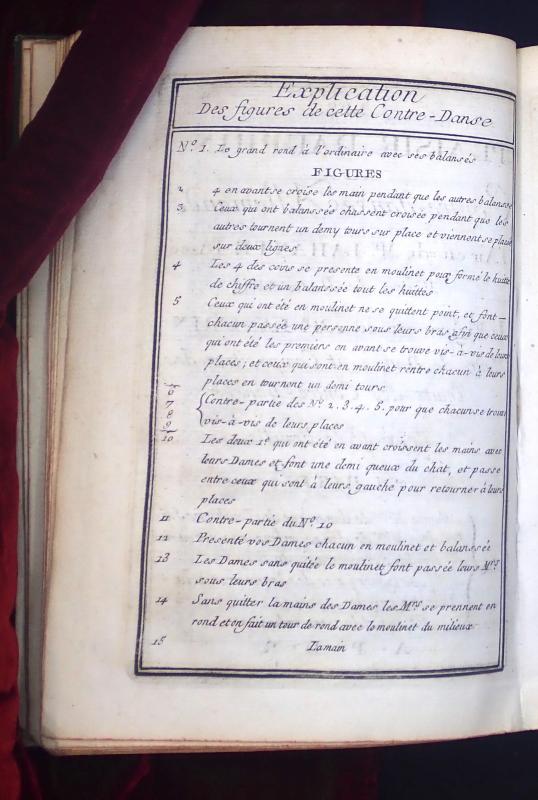 Explication
Des figures de cette Contre-Danse
Nº 1. Le grand rond à l'ordinaire avec ses balansés
FIGURES
2 4 en avant se croise les main pendant que les autres balanse
3 Ceux qui ont balanssée chassent croisée pendant que les
autres tournent un demy tours sur place et viennent se plaie
sur deux lignes
4 Les 4 des coins se presente en moulinet pour formé le huitte
de chiffre et un balanssée tout les huittes
5 Ceux qui ont été en moulinet ne se quittent point, et font -
chacun passée une personne sous leurs bras afin que ceux
qui ont été les premiers en avant se trouve vis-à-vis de leurs
places; et ceux qui sont en moulinet rentre chacun à leurs
places en tournent un demi tours
6
7 Contre-partie des Nº 2. 3. 4. 5. pour que chacun se trouv
8 vis-à-vis de leurs places
9
10 Les deux 1er qui ont été en avant croissent les mains avec
leurs Dames et font une demi queux du chat, et passe
entre ceux qui sont à leurs gauche pour retourner à leurs
places
11 Contre-partie du Nº 10
12 Presenté vos Dames chacun en moulinet et balanssée
13 Les Dames sans quitée le moulinet font passée leurs Mrs
sous leurs bras
14 Sans quitter la mains des Dames les Mrs se prennent en
rond et on fait un tour de rond avec le moulinet du milieux
15 La main